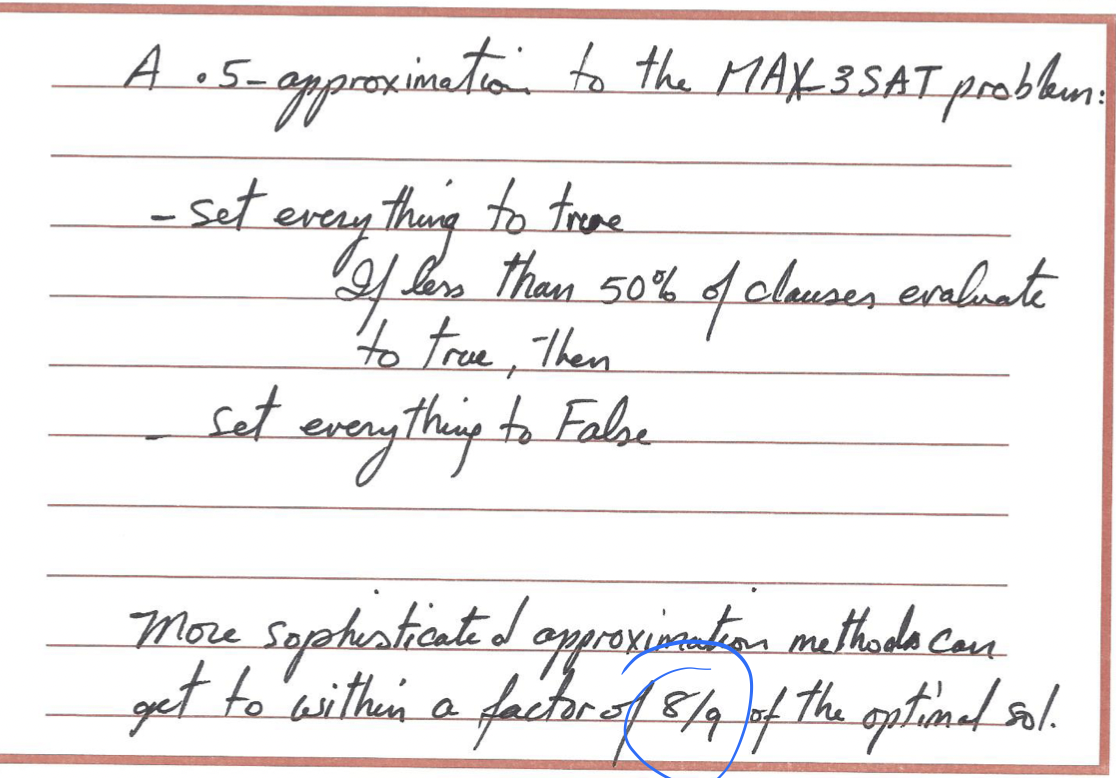 A .5-approximation to the MAX-3SAT problem:
- set everything to true
If less than 50% of clauses evaluate
to true, Then
- set everything to False
More sophisticated approximation methods can
get to within a factor of 8/9 of the optimal sol.